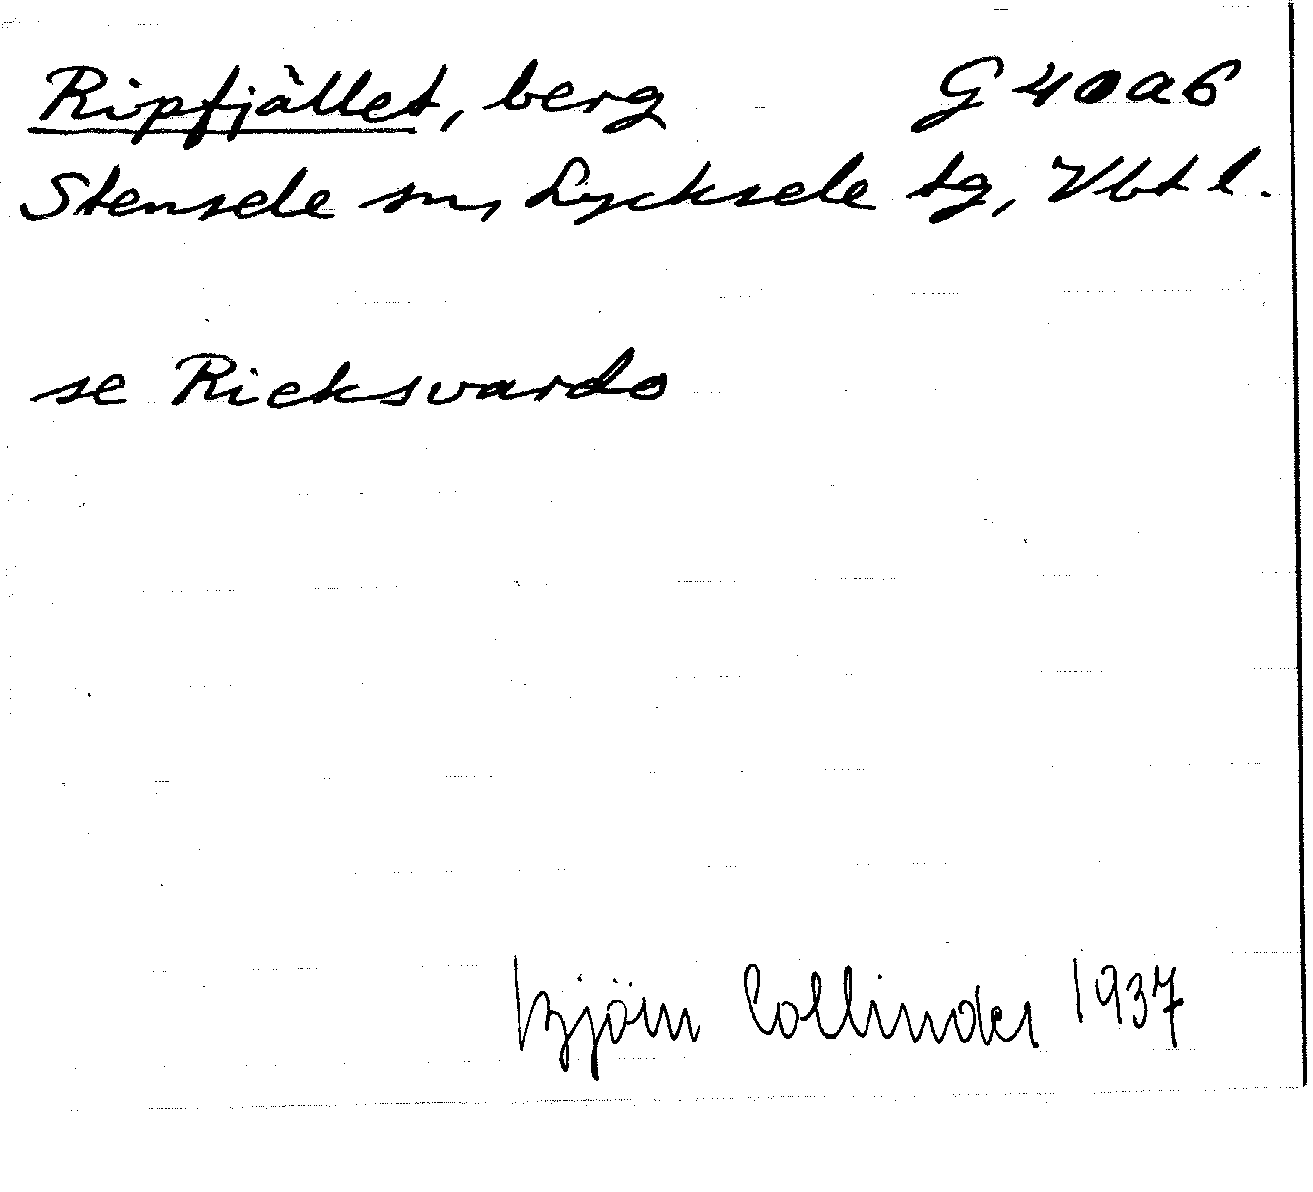 Ripfjället, berg G 40 a 6
Stensele sn, Lycksele tg, Vbt l.
se Ricksvardo
Björn Collinder 1937